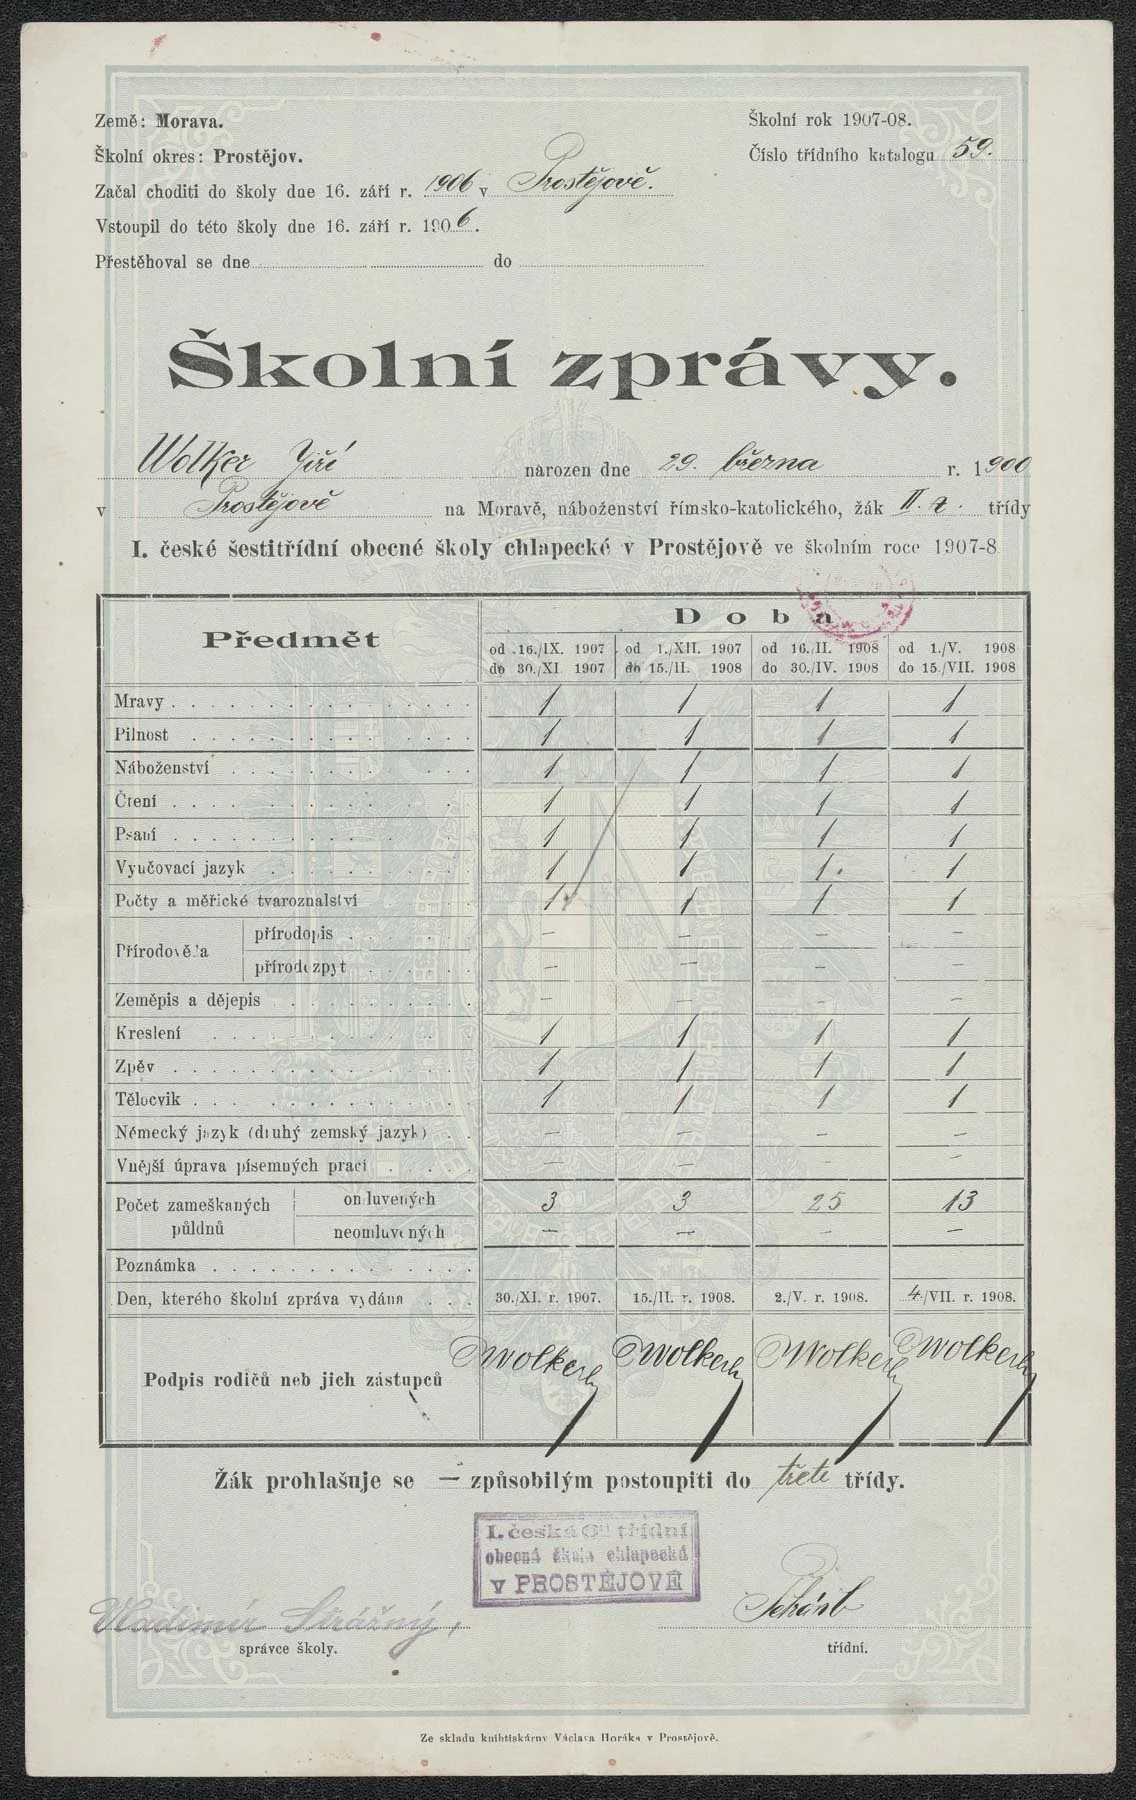 Země: Morava.
Školní rok 1907-08.
Školní okres: Prostějov.
Číslo třídního katalogu 59.
Začal choditi do školy dne 16. září r. 1906 v Prostějově.
Vstoupil do této školy dne 16. září r. 1906.
Přestěhoval se dne do
Školní zprávy.
Wolker Jiří narozen dne 29. března r. 1900
v Prostějově na Moravě, náboženství římsko-katolického, žák II. a. třídy
I. české šestitřídní obecné školy chlapecké v Prostějově ve školním roce 1907-8
Předmět Doba
od 16./IX. 1907 od 1./XII. 1907 od 16./II. 1908 od 1./V. 1908
do 30./XI. 1907 do 15./II. 1908 do 30./IV. 1908 do 15./VII. 1908
Mravy 1 1 1 1
Pilnost 1 1 1 1
Náboženství 1 1 1 1
Čtení 1 1 1 1
Psaní 1 1 1 1
Vyučovací jazyk 1 1 1 1
Počty a měřické tvaroznalství 1 1 1 1
Přírodověda
přírodopis – – – –
přírodozpyt – – – –
Zeměpis a dějepis – – – –
Kreslení 1 1 1 1
Zpěv 1 1 1 1
Tělocvik 1 1 1 1
Německý jazyk (druhý zemský jazyk) – – – –
Vnější úprava písemných prací – – – –
Počet zameškaných půldnů
omluvených 3 3 25 13
neomluvených – – – –
Poznámka
Den, kterého školní zpráva vydána 30./XI. r. 1907. 15./II. r. 1908. 2./V. r. 1908. 4./VII. r. 1908.
Podpis rodičů neb jich zástupců Wolker Wolker Wolker Wolker
Žák prohlašuje se — způsobilým postoupiti do třetí třídy.
I. česká 6ti třídní
obecná škola chlapecká
V PROSTĚJOVĚ
Vladimír Strážný,
správce školy.
třídní.
Ze skladu knihtiskárny Václava Horáka v Prostějově.